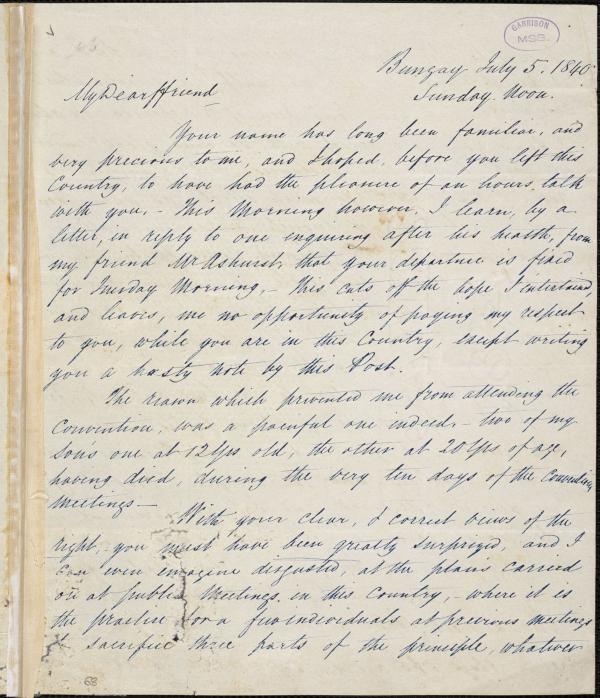 GARRISON
MSS.
Bungay July 5. 1840
Sunday. Noon.
My Dear ffriend
Your name has long been familiar, and
very precious to me, and I hoped, before you left this
Country, to have had the pleasure of an hours, talk
with you, - This Morning however, I learn, by a
letter, in reply to one enquiring after his health, from
my friend Mr Ashurst, that your departure is fixed
for Tuesday Morning, - This cuts off the hope I entertained,
and leaves, me no opportunity of paying my respect
to you, while you are in this Country, except writing
you a hasty note by this Post.
The reason which prevented me from attending the
Convention, was a painful one indeed, - two of my
Sons one at 12 Yrs old, the other at 20 Yrs of age,
having died, during the very ten days of the Convention
Meetings -
With your clear, & correct views of the
right, you must have been greatly surprized, and I
can even imagine disgusted, at the plans carried
on at public Meetings in this Country, where it is
the practice for a few individuals at previous meetings
to sacrifice three parts of the principle, whatever
68